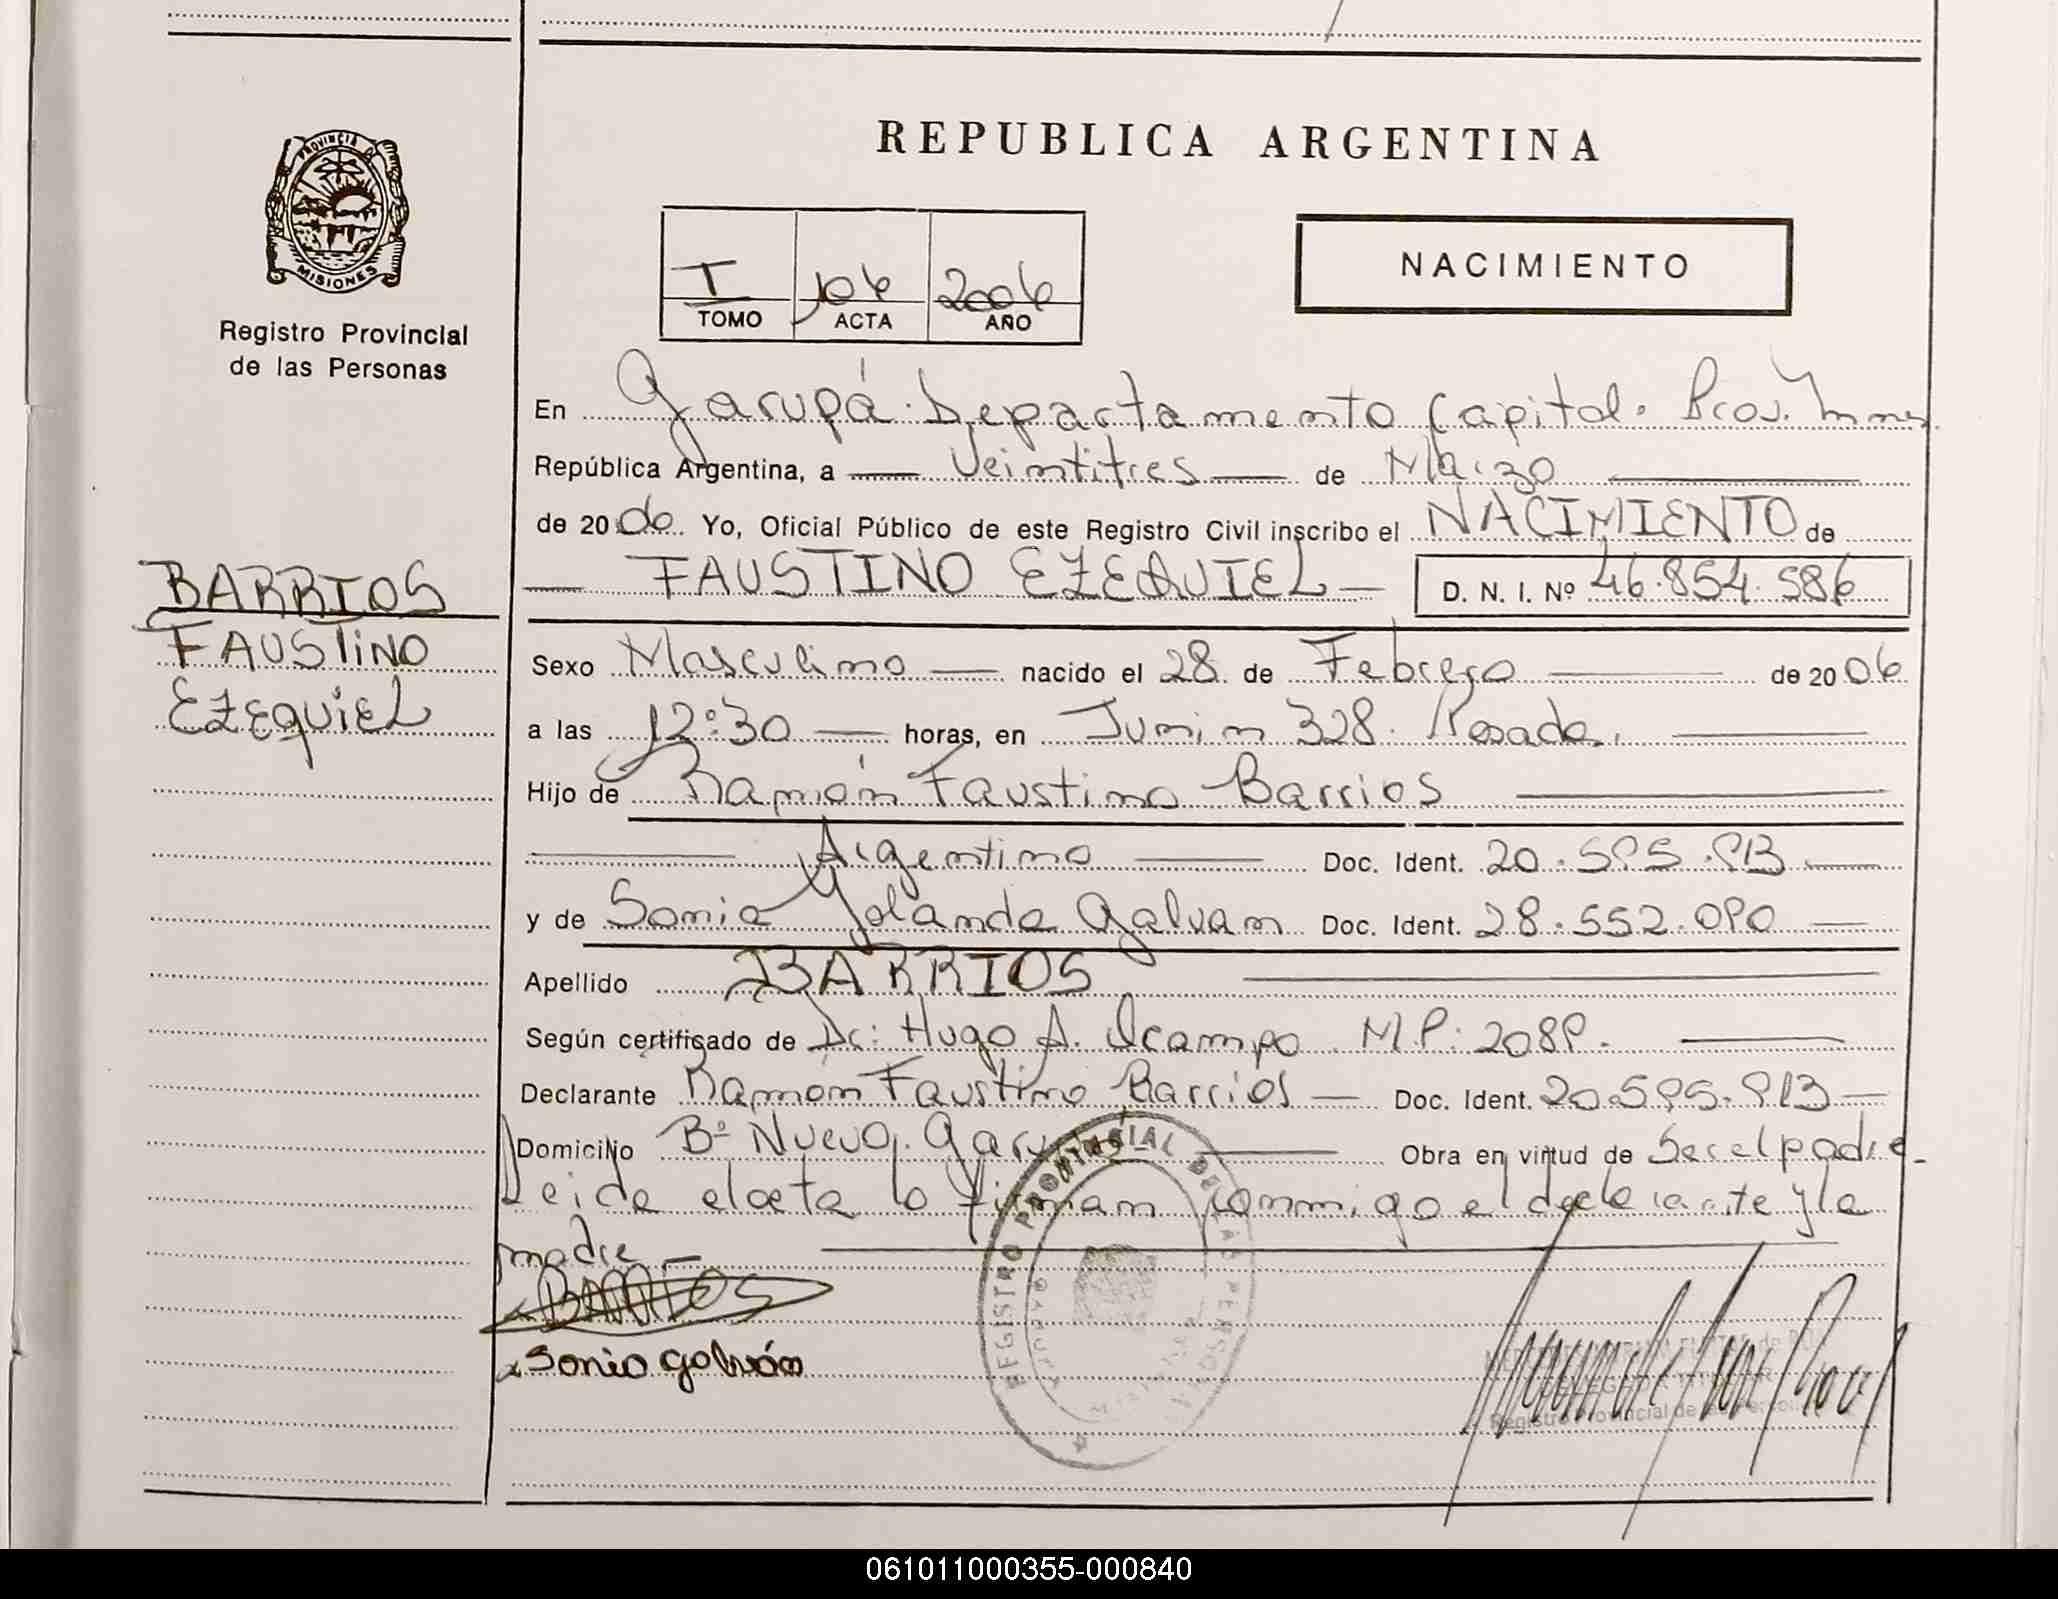 REPUBLICA ARGENTINA
PROVINCIA DE
MISIONES
Registro Provincial
de las Personas
T 106 2006
TOMO ACTA AÑO
NACIMIENTO
En Garupá. Departamento Capital. Prov. Mnes
República Argentina, a Veintitres de Marzo
de 20 06 Yo, Oficial Público de este Registro Civil inscribo el NACIMIENTO de
FAUSTINO EZEQUIEL D. N. I. Nº 46.854.586
BARRIOS
FAUSTINO
EZEQUIEL
Sexo Masculino nacido el 28 de Febrero de 20 06
a las 12:30 horas, en Junin 328. Posadas.
Hijo de Ramón Faustino Barrios
Argentino Doc. Ident. 20.595.913
y de Sonia Yolanda Galvan Doc. Ident. 28.552.090
Apellido BARRIOS
Según certificado de Dr: Hugo A. Ocampo M.P: 2089.
Declarante Ramón Faustino Barrios Doc. Ident. 20.595.913
Domicilio Bº Nuevo. Garupá Obra en virtud de Ser el padre
Leida el acta lo firman conmigo el declarante y la
madre
BARRIOS
Sonia Galván
REGISTRO PROVINCIAL DE LAS PERSONAS
GARUPA
MISIONES
Registro Provincial de las Personas
061011000355-000840